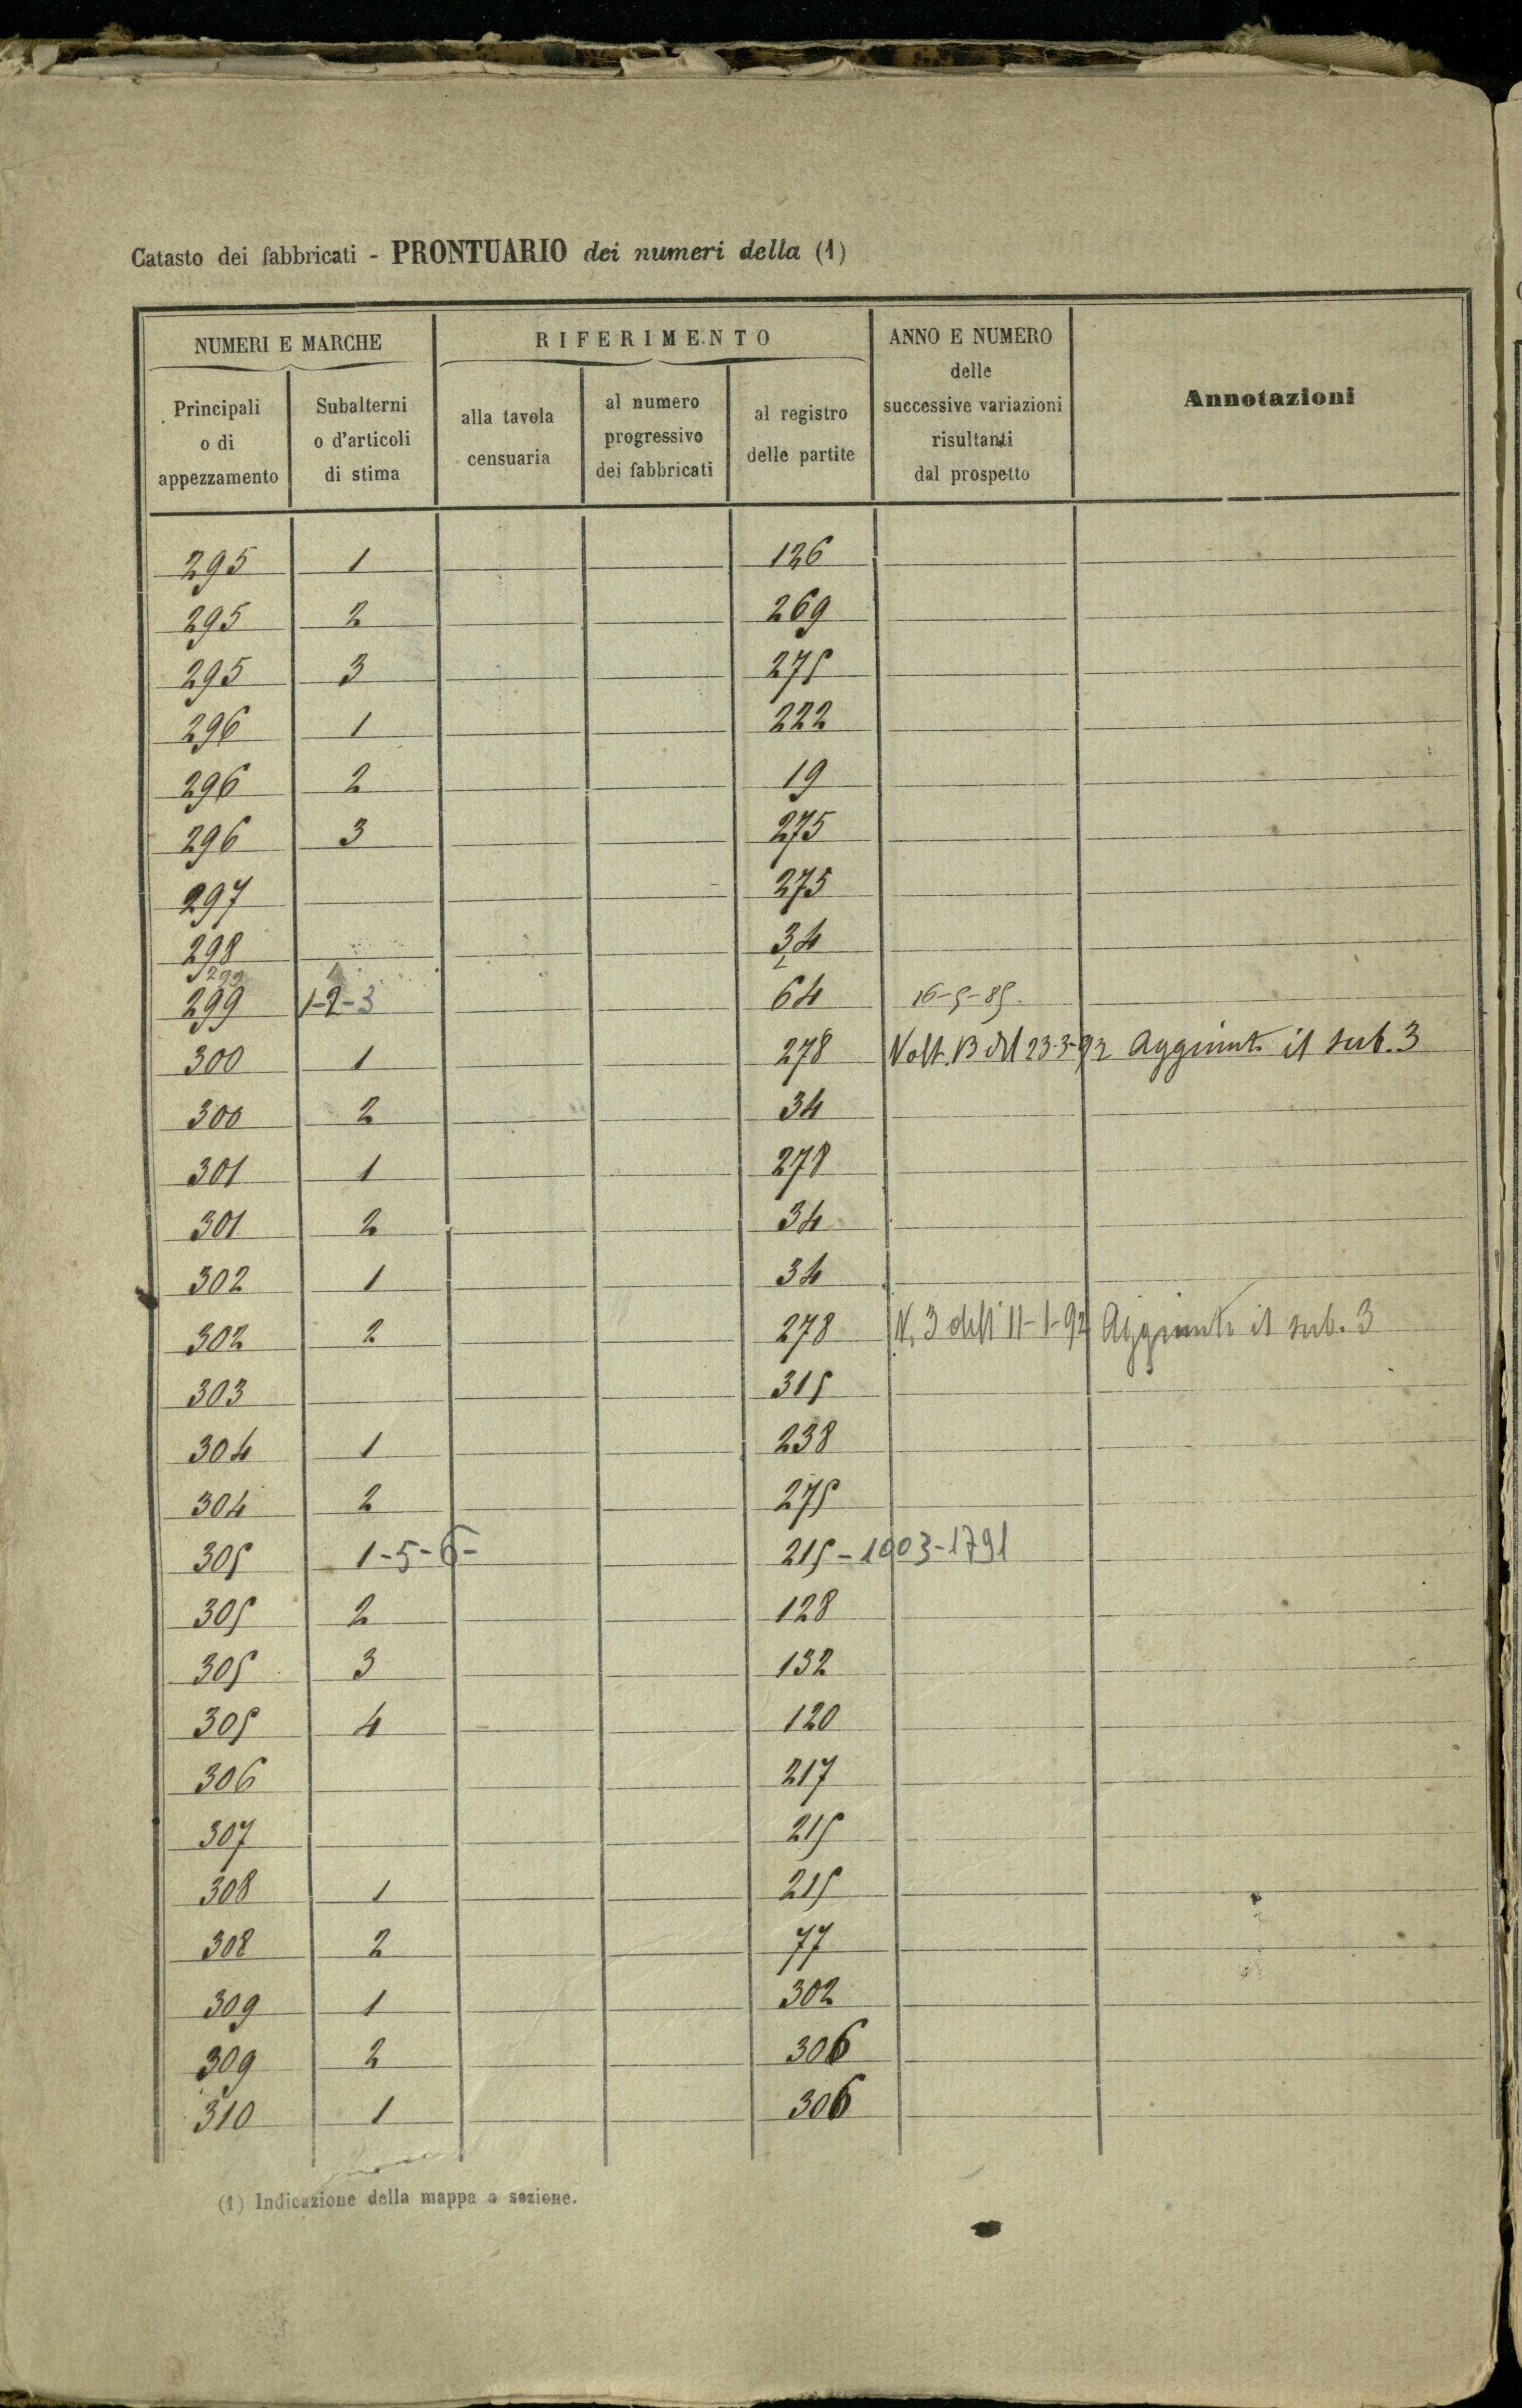 Catasto dei fabbricati - PRONTUARIO dei numeri della (1)
NUMERI E MARCHE
RIFERIMENTO
ANNO E NUMERO
delle
successive variazioni
risultanti
dal prospetto
Annotazioni
Principali
o di
appezzamento
Subalterni
o d'articoli
di stima
alla tavola
censuaria
al numero
progressivo
dei fabbricati
al registro
delle partite
295 1 126
295 2 269
295 3 275
296 1 222
296 2 19
296 3 275
297 275
298 34
299
299 1-2-3 64 16-5-85
300 1 278 23-3-92 Aggiunto il sub. 3
300 2 34
301 1 278
301 2 34
302 1 34
302 2 278 N. 3 dell' 11-1-92 Aggiunto il sub. 3
303 315
304 1 238
304 2 275
305 1-5-6- 215-1003-1791
305 2 128
305 3 132
305 4 120
306 217
307 215
308 1 215
308 2 77
309 1 302
309 2 306
310 1 306
(1) Indicazione della mappa o sezione.